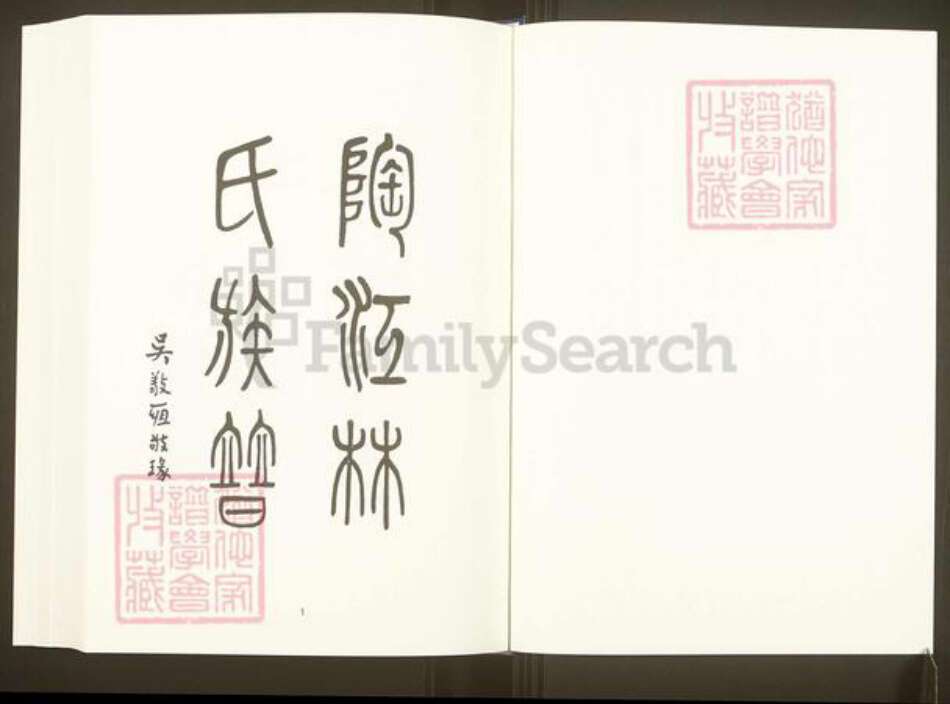 猶他家
譜學會
收藏
陶江林
氏族普
吳敬恆敬瑑
猶他家
譜學會
收藏
1
FamilySearch